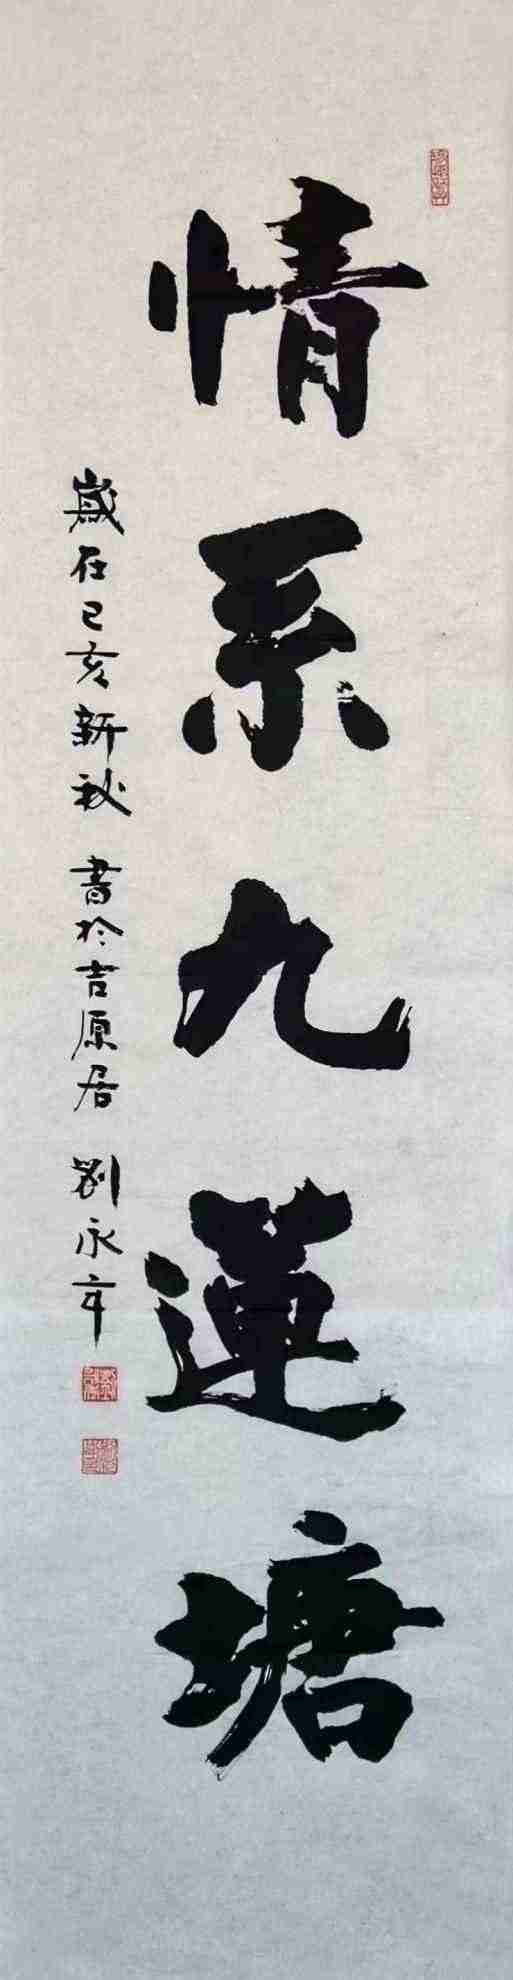 情系九蓮塘
歲在己亥新秋 書於吉原居 劉永年